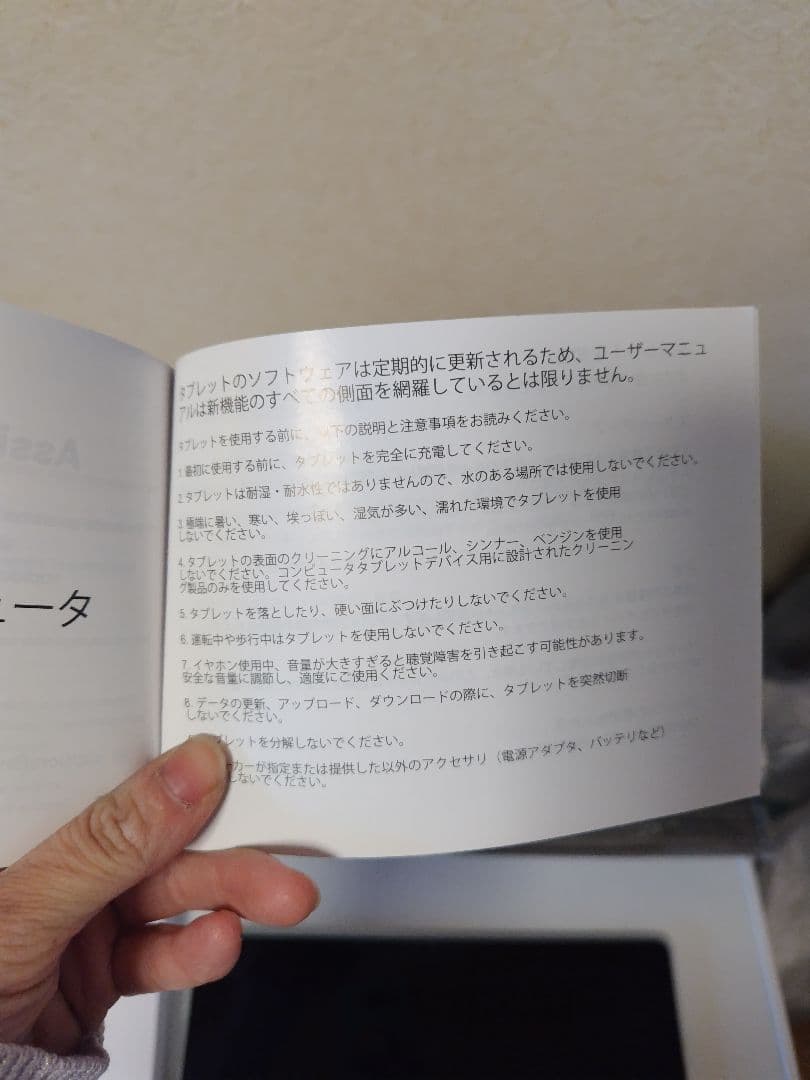 ュータ
タブレットのソフトウェアは定期的に更新されるため、ユーザーマニュ
アルは新機能のすべての側面を網羅しているとは限りません。
タブレットを使用する前に、以下の説明と注意事項をお読みください。
1. 最初に使用する前に、タブレットを完全に充電してください。
2. タブレットは耐湿・耐水性ではありませんので、水のある場所では使用しないでください。
3. 極端に暑い、寒い、埃っぽい、湿気が多い、濡れた環境でタブレットを使用
しないでください。
4. タブレットの表面のクリーニングにアルコール、シンナー、ベンジンを使用
しないでください。コンピュータタブレットデバイス用に設計されたクリーニン
グ製品のみを使用してください。
5. タブレットを落としたり、硬い面にぶつけたりしないでください。
6. 運転中や歩行中はタブレットを使用しないでください。
7. イヤホン使用中、音量が大きすぎると聴覚障害を引き起こす可能性があります。
安全な音量に調節し、適度にご使用ください。
8. データの更新、アップロード、ダウンロードの際に、タブレットを突然切断
しないでください。
ブレットを分解しないでください。
ーカーが指定または提供した以外のアクセサリ（電源アダプタ、バッテリなど）
しないでください。